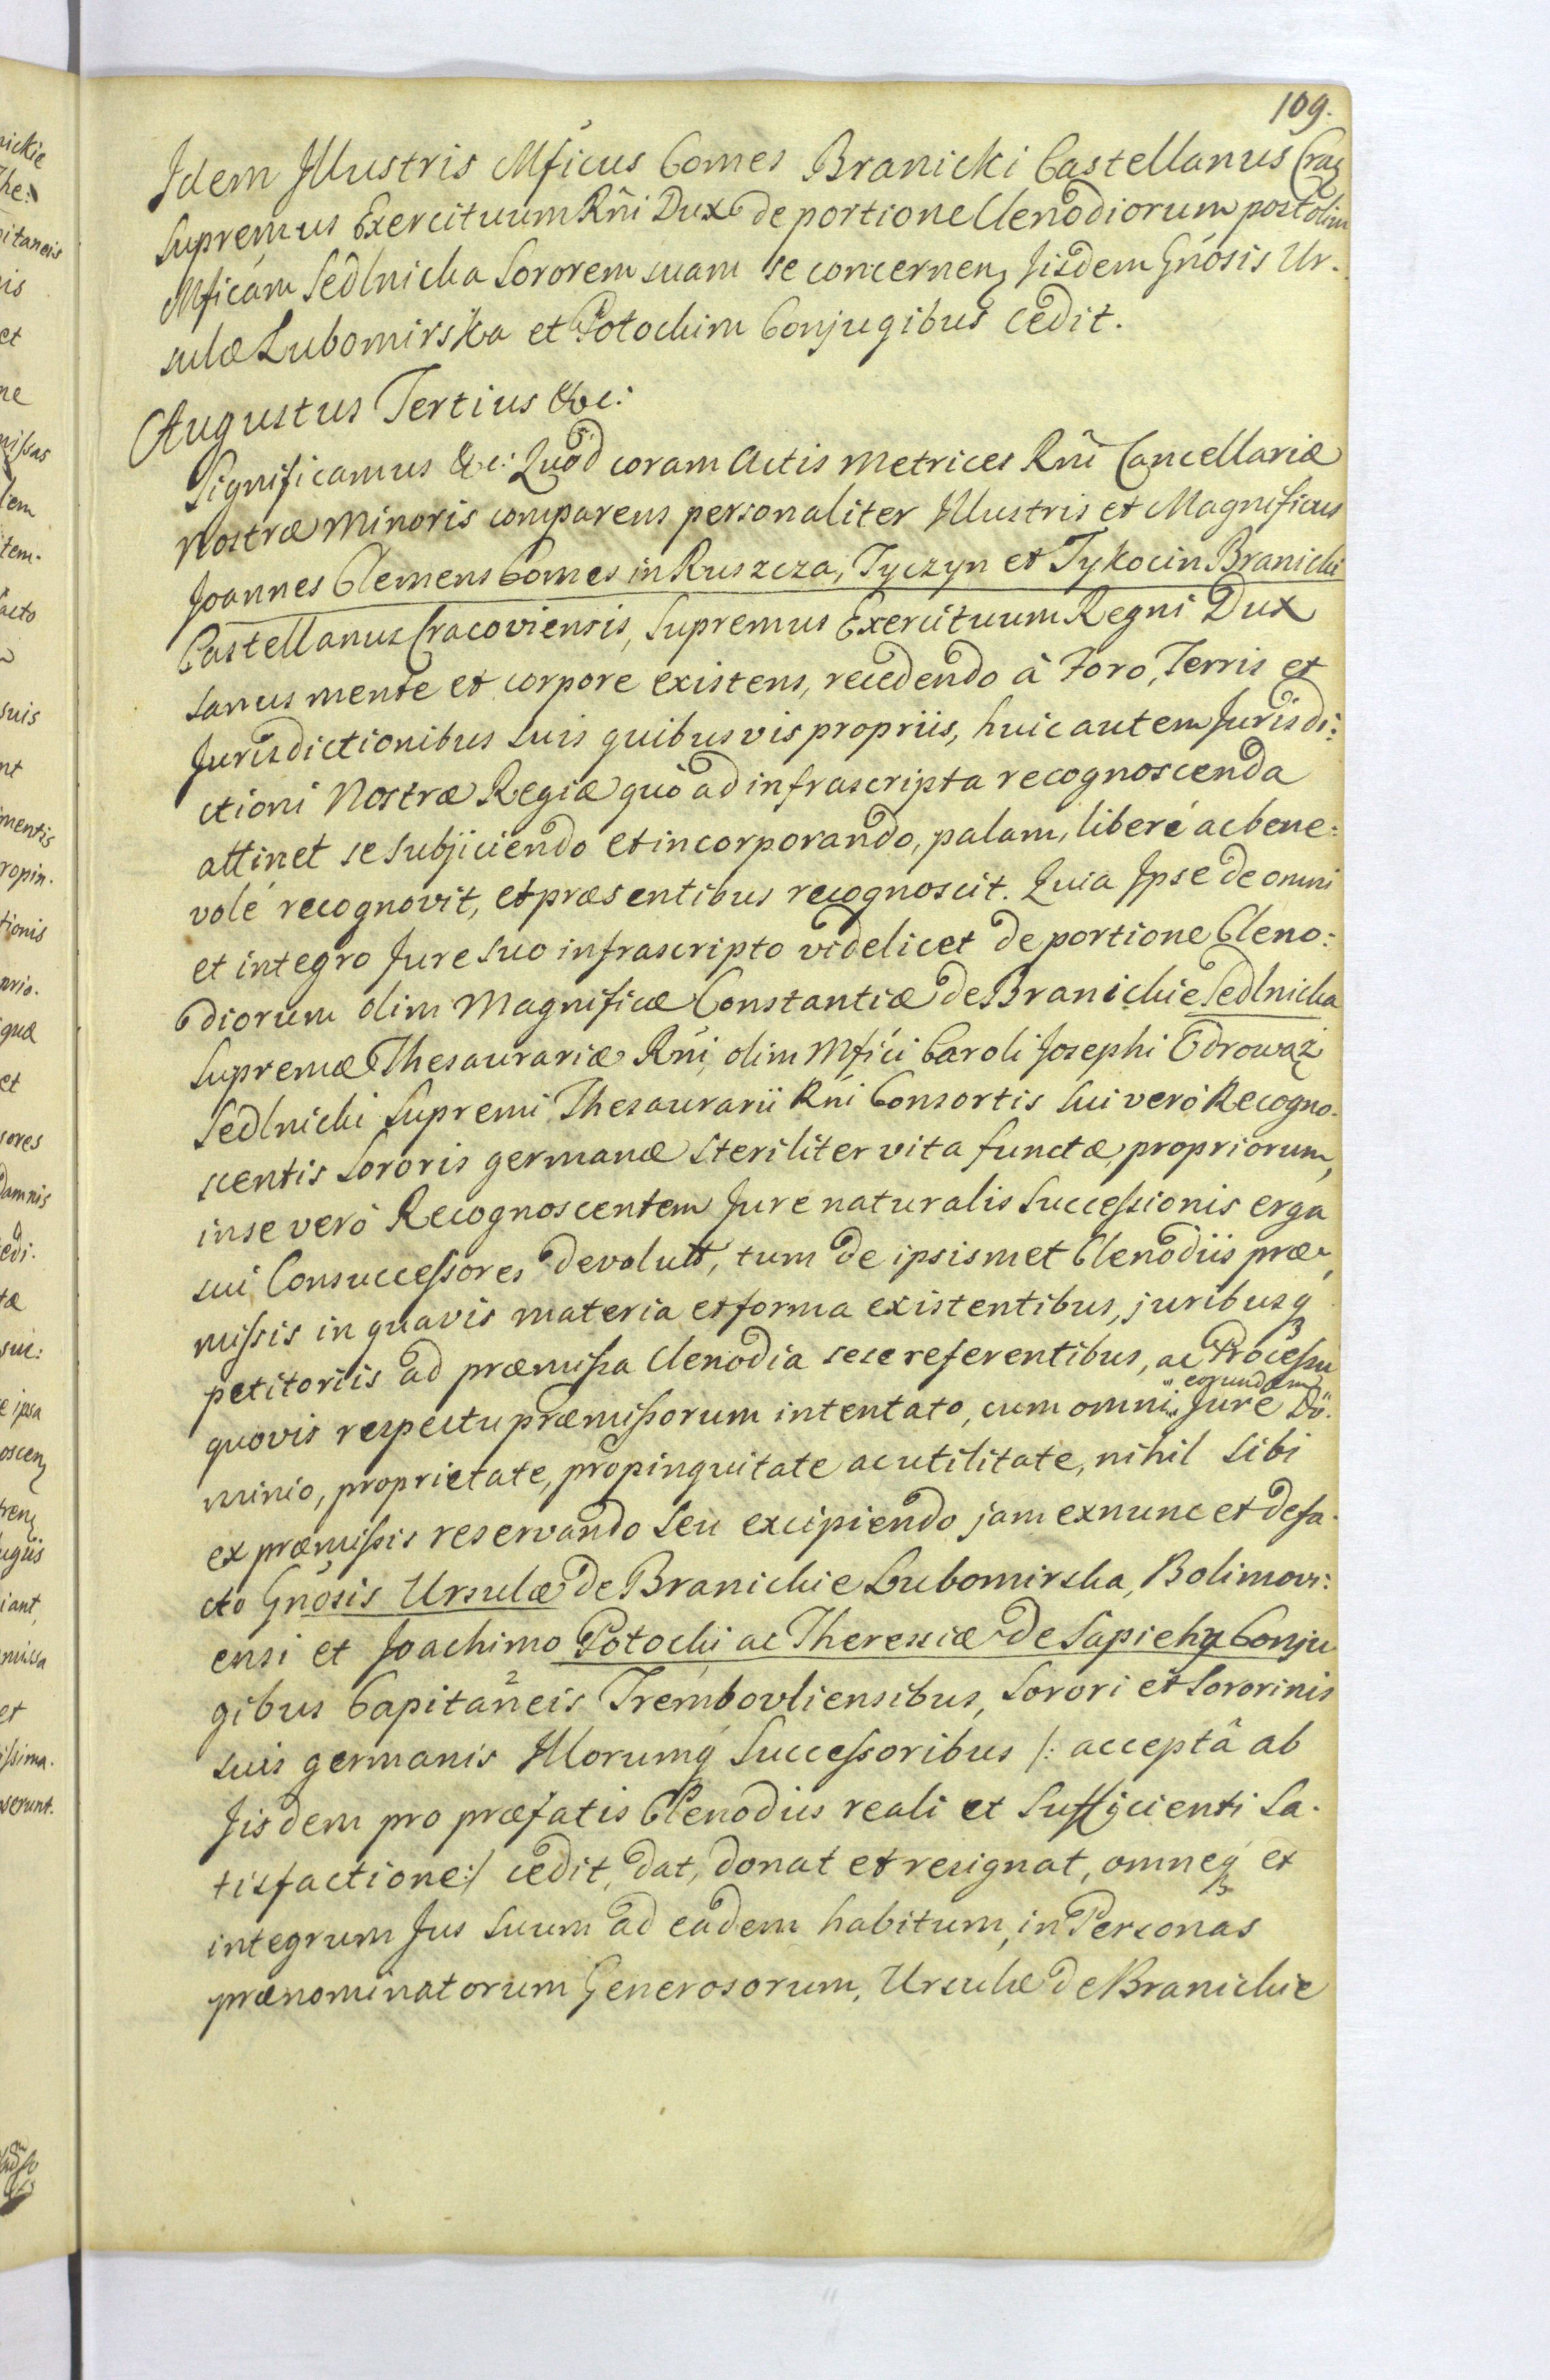 109.
Idem Illustris Mficus Comes Branicki Castellanus Crac
Supremus Exercituum Rñi Dux de portione Clenodiorum post olim
Mficam Sedlnicka Sororem suam se concernen Iisdem Gñosis Ur-
sulæ Lubomirska et Potockim Conjugibus cedit.
Augustus Tertius &c:
Significamus &c: Quod coram Actis Metrices Rñi Cancellariæ
Nostræ Minoris comparens personaliter Illustris et Magnificus
Joannes Clemens Comes in Ruszcza, Tyczyn et Tykocin Branicki
Castellanus Cracoviensis, Supremus Exercituum Regni Dux
sanus mente et corpore existens, recedendo à Foro, Terris et
Jurisdictionibus suis quibusvis propriis, huic autem Jurisdi:
ctioni Nostræ Regiæ quò ad infrascripta recognoscenda
attinet se subjiciendo et incorporando, palam, liberé ac bene:
volé recognovit, et præsentibus recognoscit. Quia Ipse de omni
et integro Jure suo infrascripto videlicet de portione Cleno:
diorum olim Magnificæ Constantiæ de Branickie Sedlnicka
Supremæ Thesaurariæ Rñi, olim Mfici Caroli Josephi Odrowąż
Sedlnicki Supremi Thesaurarii Rñi Consortis sui verò Recogno-
scentis Sororis germanæ steriliter vita functæ, propriorum,
in se verò Recognoscentem Jure naturalis Successionis erga
sui Consuccessores devolut, tum de ipsismet Clenodiis præ-
missis in quavis materia et forma existentibus, juribusq
petitoriis ad præmissa Clenodia sese referentibus, ac Processu
quovis respectu præmissorum intentato, cum omni eorundem Jure Do-
minio, proprietate, propinquitate ac utilitate, nihil sibi
ex præmissis reservando seu excipiendo jam ex nunc et de fa-
cto Gñosis Ursulæ de Branickie Lubomirska, Bolimovi:
ensi et Joachimo Potocki ac Theressiæ de Sapiehy Conju
gibus Capitaneis Trembovliensibus, Sorori et Sororinis
suis germanis Illorumq́ Successoribus /: acceptâ ab
Iisdem pro præfatis Clenodiis reali et sufficienti sa-
tisfactione:/ cedit, dat, donat et resignat, omneq́ et
integrum Jus suum ad eadem habitum, in Personas
prænominatorum Generosorum, Ursulæ de Branickie